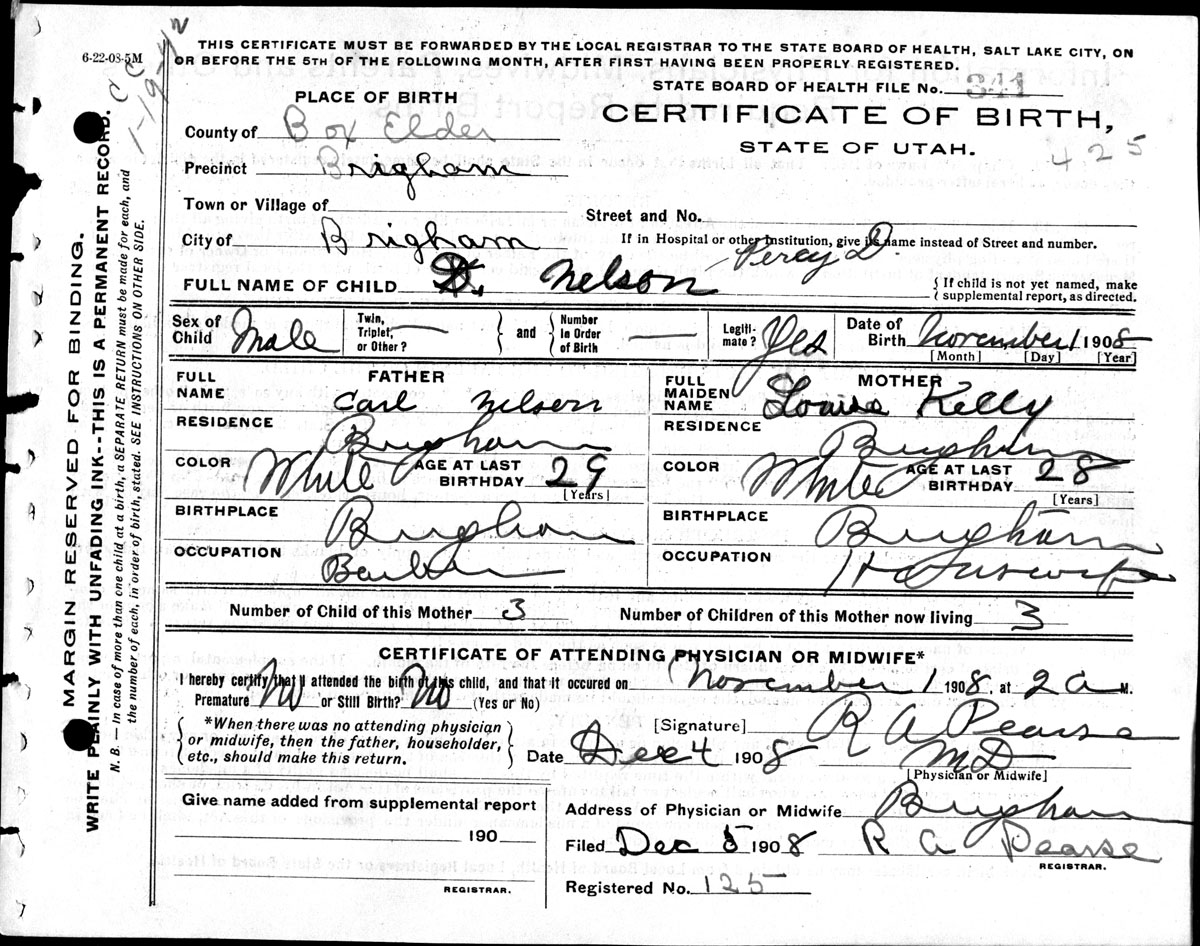 6-22-03-5M
THIS CERTIFICATE MUST BE FORWARDED BY THE LOCAL REGISTRAR TO THE STATE BOARD OF HEALTH, SALT LAKE CITY, ON
OR BEFORE THE 5TH OF THE FOLLOWING MONTH, AFTER FIRST HAVING BEEN PROPERLY REGISTERED.
STATE BOARD OF HEALTH FILE No. 341
PLACE OF BIRTH
CERTIFICATE OF BIRTH,
STATE OF UTAH.
425
County of Box Elder
Precinct Brigham
Town or Village of
Street and No.
City of Brigham
If in Hospital or other Institution, give its name instead of Street and number.
Percy D.
FULL NAME OF CHILD D. Nelson
If child is not yet named, make
supplemental report, as directed.
Sex of Child Male
Twin, Triplet, or Other? —
and
Number in Order of Birth —
Legiti-mate? Yes
Date of Birth November 1 1908
[Month] [Day] [Year]
FATHER
FULL NAME Carl Nelson
RESIDENCE Brigham
COLOR White AGE AT LAST BIRTHDAY 29
[Years]
BIRTHPLACE Brigham
OCCUPATION Barber
MOTHER
FULL MAIDEN NAME Louise Kelly
RESIDENCE Brigham
COLOR White AGE AT LAST BIRTHDAY 28
[Years]
BIRTHPLACE Brigham
OCCUPATION Housewife
Number of Child of this Mother 3 Number of Children of this Mother now living 3
CERTIFICATE OF ATTENDING PHYSICIAN OR MIDWIFE*
I hereby certify that I attended the birth of this child, and that it occured on November 1 1908, at 2 a M.
Premature No or Still Birth? No (Yes or No)
*When there was no attending physician
or midwife, then the father, householder,
etc., should make this return.
[Signature] R A Pearse
MD
[Physician or Midwife]
Date Dec 4 1908
Give name added from supplemental report
190
REGISTRAR.
Address of Physician or Midwife Brigham
Filed Dec 5 1908 R A Pearse
REGISTRAR.
Registered No. 125
MARGIN RESERVED FOR BINDING.
WRITE PLAINLY WITH UNFADING INK--THIS IS A PERMANENT RECORD.
N. B. — In case of more than one child at a birth, a SEPARATE RETURN must be made for each, and
the number of each, in order of birth, stated. SEE INSTRUCTIONS ON OTHER SIDE.